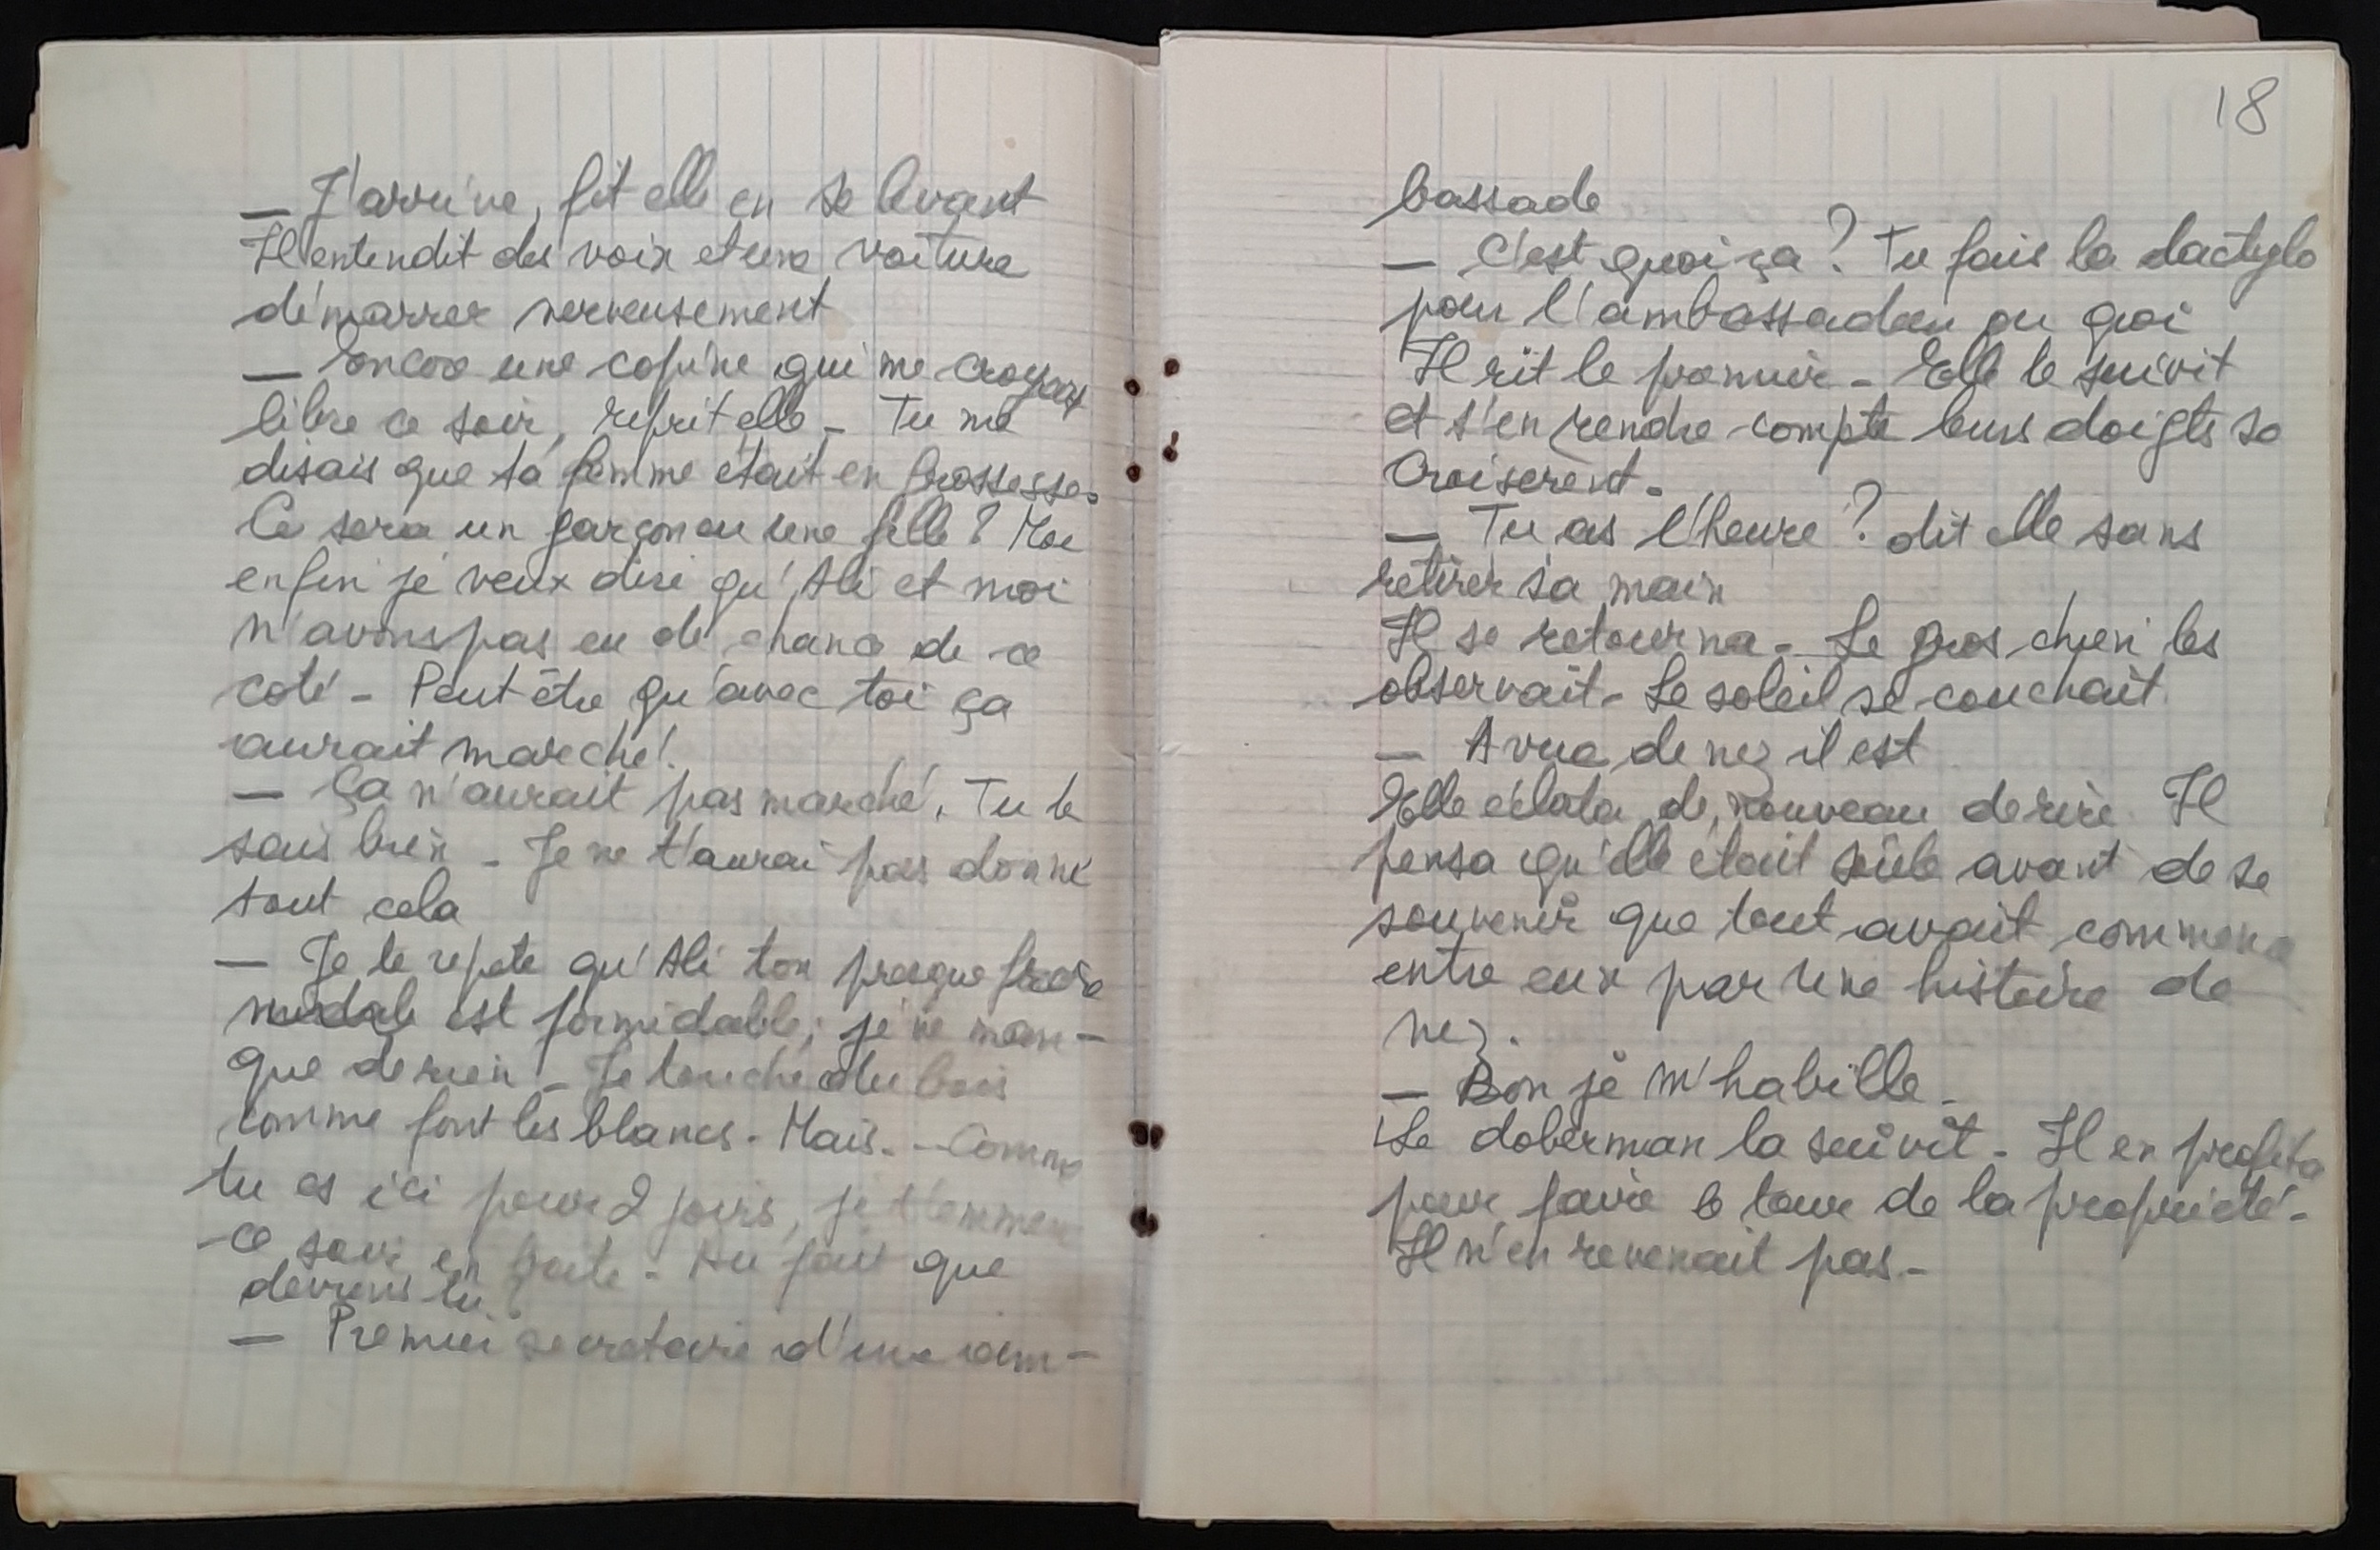 — J'arrive, fit elle en se levant
Il entendit des voix et une voiture
démarrer nerveusement
— Encore une copine qui me croyait
libre ce soir, reprit elle - Tu me
disais que ta femme était en grossesse.
Ce sera un garçon ou une fille ? Moi
enfin je veux dire qu'Ali et moi
n'avons pas eu de chance de ce
coté - Peut être qu'avec toi ça
aurait marché !
— Ça n'aurait pas marché. Tu le
sais bien - Je ne t'aurai pas donné
tout cela
— Je te repete qu'Ali ton presque frère
est formidable ; je ne man-
que de rien - Je touche du bois
comme font les blancs. Mais. - Comme
tu es ici pour 2 jours, je t'emmene
ce soir en boite - Au fait que
deviens tu
— Premier secretaire d'une am-
18
bassade
— C'est quoi ça ? Tu fais la dactylo
pour l'ambassadeur ou quoi
Il rit le premier - Elle le suivit
et s'en rendre compte leurs doigts se
croiserent -
— Tu as l'heure ? dit elle sans
retirer sa main
Il se retourna - Le gros chien les
observait - Le soleil se couchait
— A vue de nez il est
Elle éclata de nouveau de rire. Il
pensa qu'elle était seule avant de se
souvenir que tout avait commencé
entre eux par une histoire de
nez.
— Bon je m'habille -
Le doberman la suivit - Il en profita
pour faire le tour de la propriété -
Il n'en revenait pas -